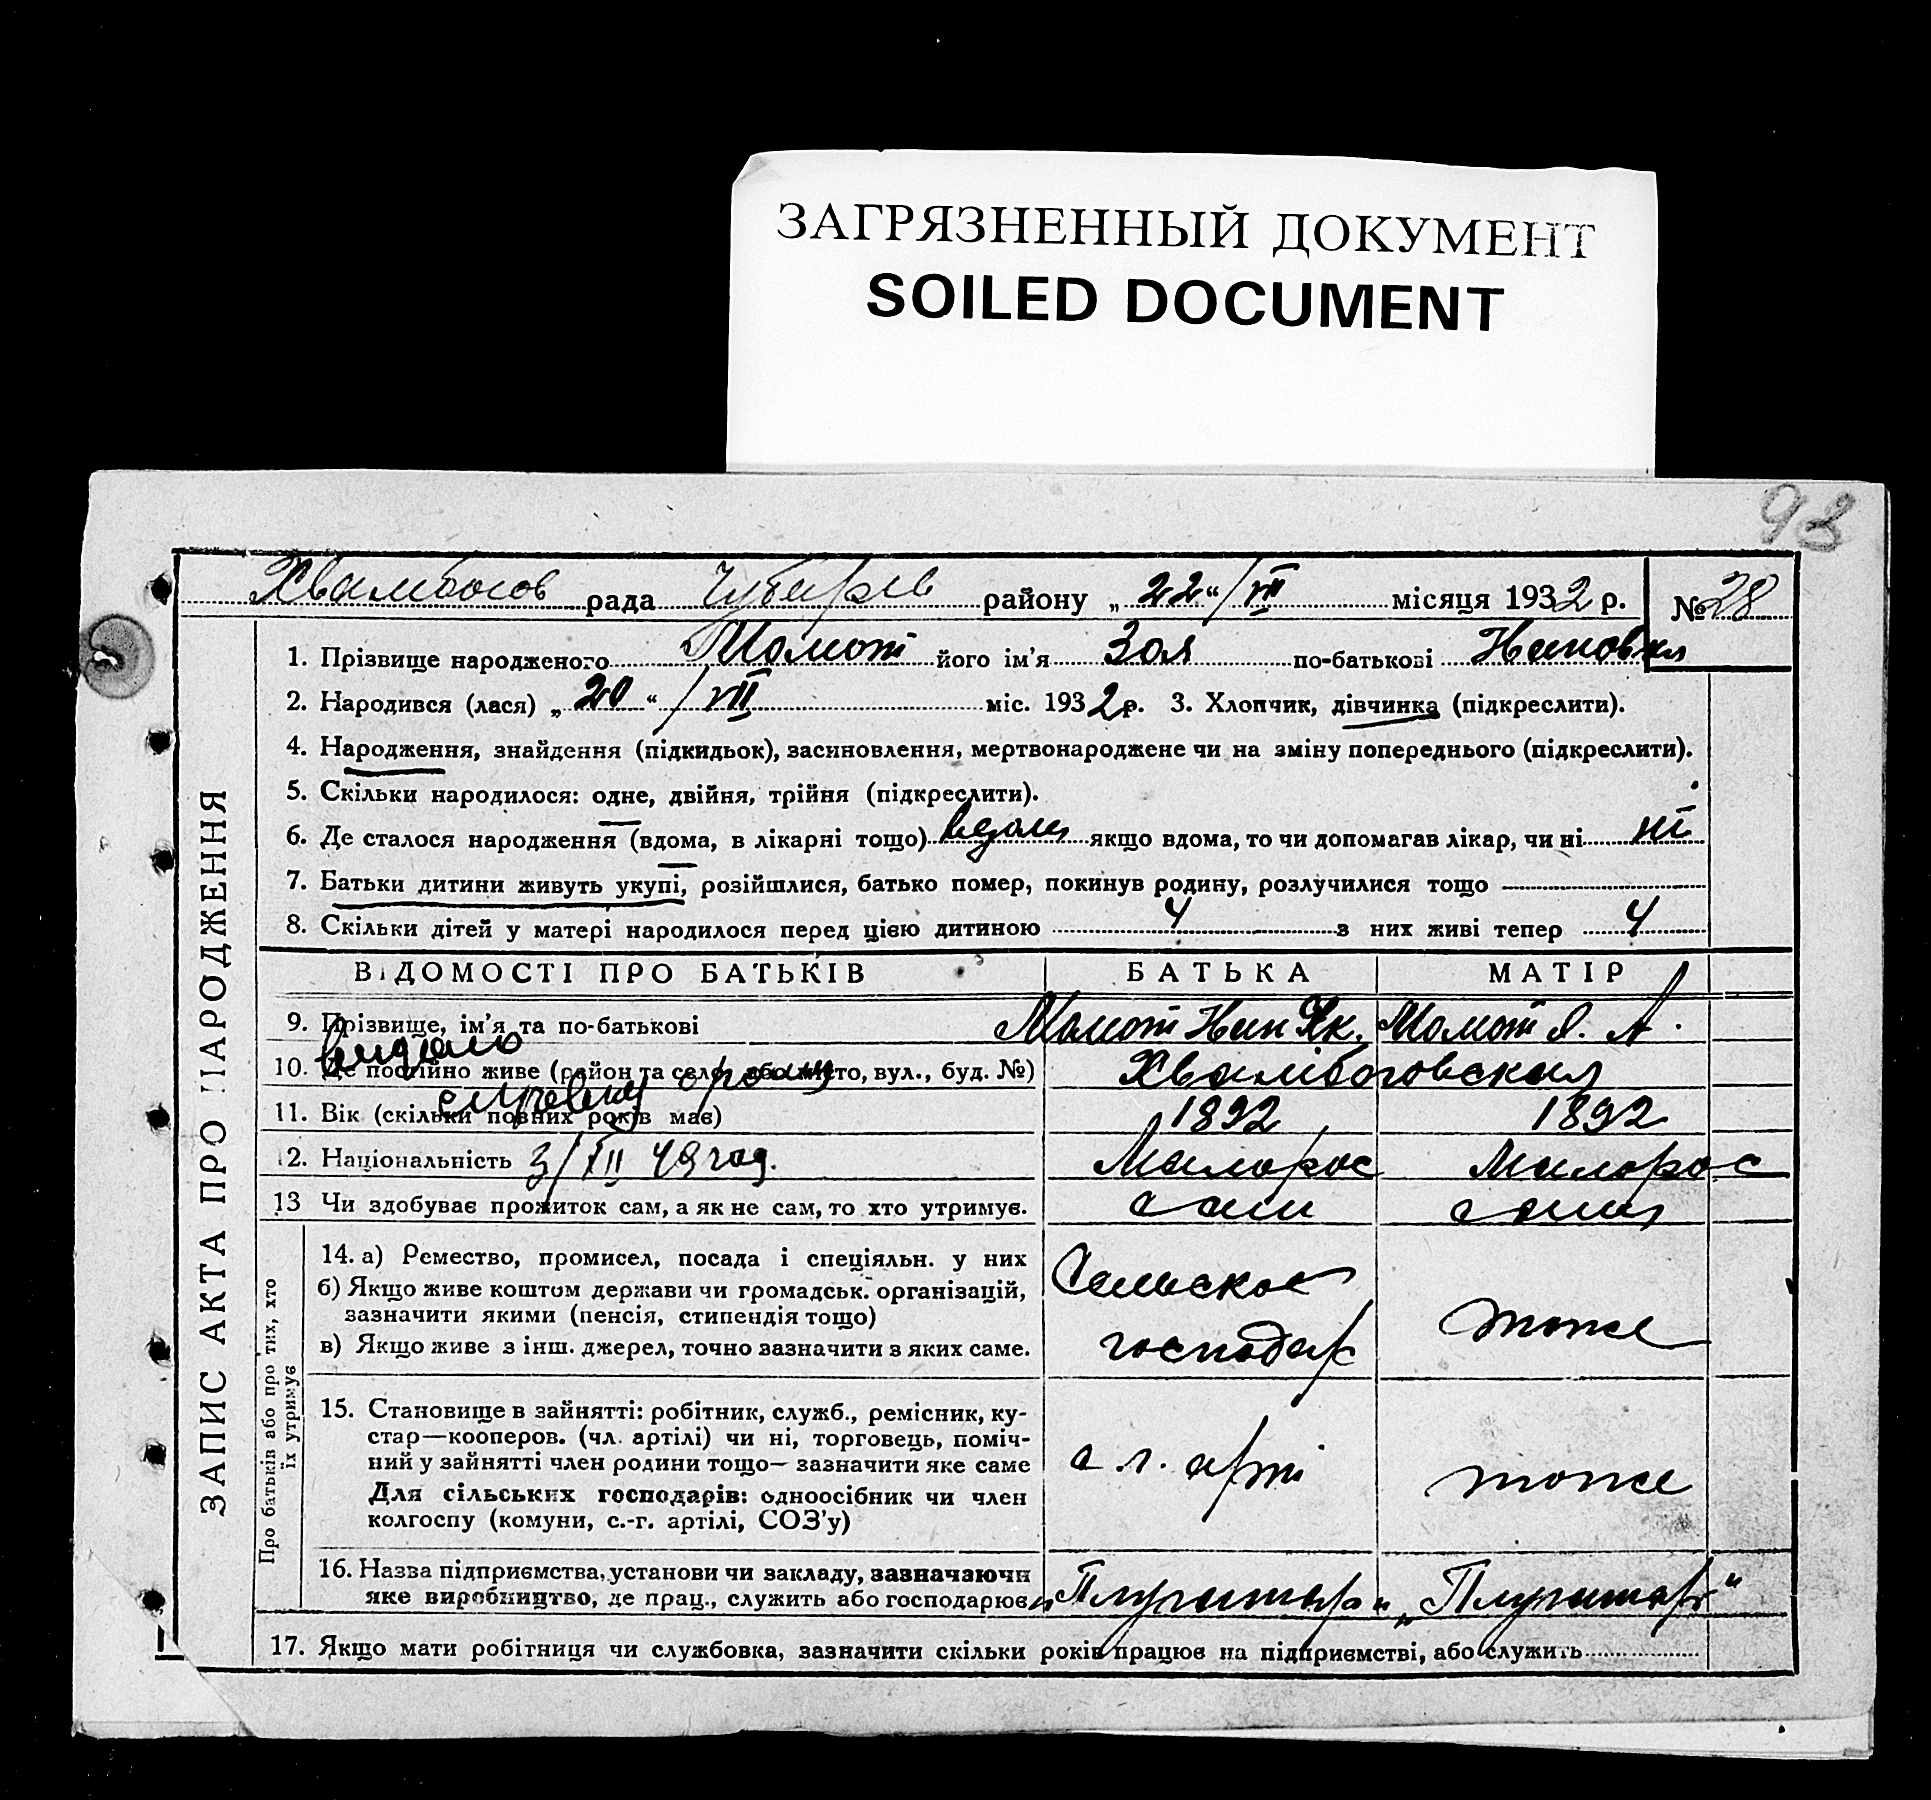 ЗАГРЯЗНЕННЫЙ ДОКУМЕНТ
SOILED DOCUMENT
98
рада Чубарів району „22“/VII місяця 1932 р. № 28
1. Прізвище народженого Мамот його ім'я Зоя по-батькові
2. Народився (лася) „20“/VII міс. 1932 р. 3. Хлопчик, дівчинка (підкреслити).
4. Народження, знайдення (підкидьок), засиновлення, мертвонароджене чи на зміну попереднього (підкреслити).
5. Скільки народилося: одне, двійня, трійня (підкреслити).
6. Де сталося народження (вдома, в лікарні тощо) вдома якщо вдома, то чи допомагав лікар, чи ні ні
7. Батьки дитини живуть укупі, розійшлися, батько помер, покинув родину, розлучилися тощо
8. Скільки дітей у матері народилося перед цією дитиною 4 з них живі тепер 4
ВІДОМОСТІ ПРО БАТЬКІВ БАТЬКА МАТІР
9. Прізвище, ім'я та по-батькові Мамот Мамот А.
видано
10. Де постійно живе (район та село, або місто, вул., буд. №)
справку
11. Вік (скільки повних років має) 1892 1892
12. Національність 3/XII 49 год. Малорос Малорос
13 Чи здобуває прожиток сам, а як не сам, то хто утримує. сам сама
14. а) Ремество, промисел, посада і спеціяльн. у них Сельское
б) Якщо живе коштом держави чи громадськ. організацій,
зазначити якими (пенсія, стипендія тощо) тоже
в) Якщо живе з інш. джерел, точно зазначити з яких саме. господар
15. Становище в зайнятті: робітник, служб., ремісник, ку-
стар—кооперов. (чл. артілі) чи ні, торговець, поміч-
ний у зайнятті член родини тощо— зазначити яке саме с. г. арті тоже
Для сільських господарів: одноосібник чи член
колгоспу (комуни, с.-г. артілі, СОЗ'у)
16. Назва підприємства, установи чи закладу, зазначаючи
яке виробництво, де прац., служить або господарює „Плугатар“ „Плугатар“
17. Якщо мати робітниця чи службовка, зазначити скільки років працює на підприємстві, або служить
ЗАПИС АКТА ПРО НАРОДЖЕННЯ
Про батьків або про тих, хто
їх утримує